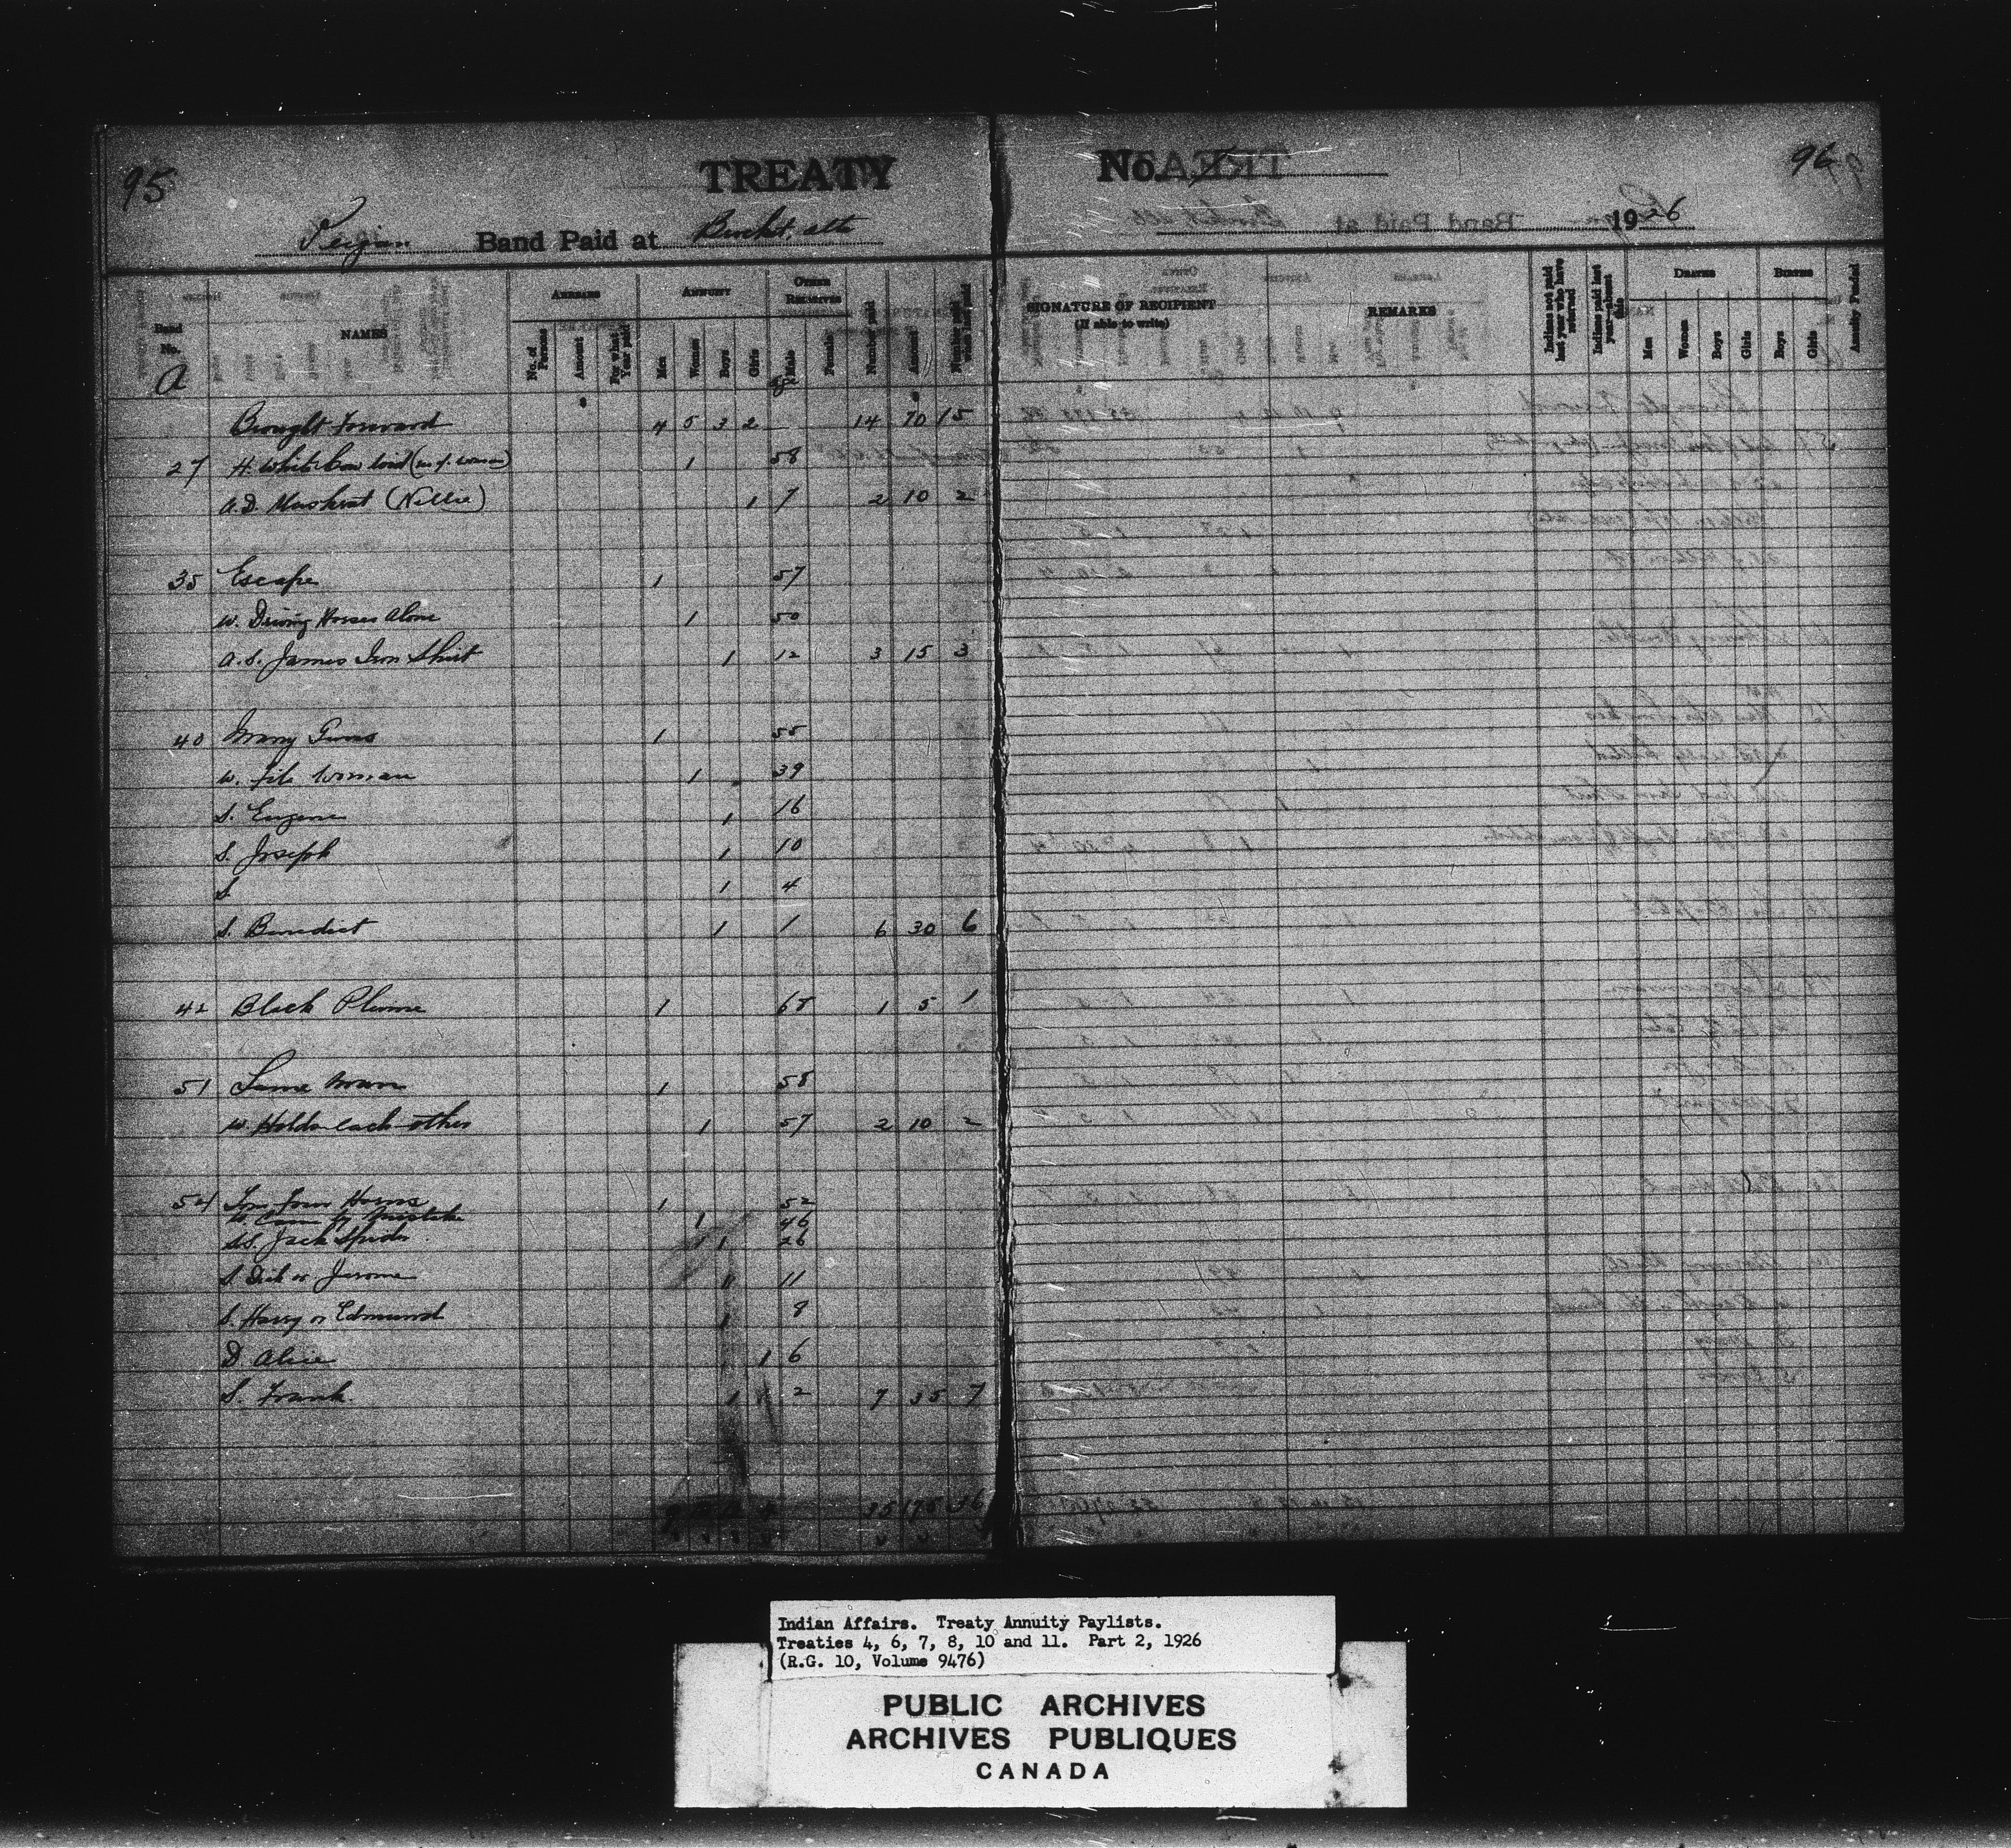 95
TREATY No. 7
96
Peigan Band Paid at Brocket, Alta 1926
Band No.
NAMES
ARREARS
ANNUITY
OTHER RELATIVES
No. of Persons
Amount
For what Year paid
Men
Women
Boys
Girls
Male
Female
Number paid
Amount
Number paid when last paid
SIGNATURE OF RECIPIENT
(If able to write)
REMARKS
Indians not paid last year who have returned
Indians paid last year—absent this
DEATHS
Men
Women
Boys
Girls
BIRTHS
Boys
Girls
Annuity Funded
A
Age
Brought Forward 4 5 3 2 14 70 15
27 H. White Cow 1 58
A.D. (Nellie) 1 7 2 10 2
35 Escape 1 57
W. Driving Horses Alone 1 50
A.S. James Iron Shirt 1 12 3 15 3
40 Many Guns 1 55
W. File Woman 1 39
S. Eugene 1 16
S. Joseph 1 10
S. 1 4
S. Benedict 1 1 6 30 6
42 Black Plume 1 1 5 1
51 Lame Man 1 58
W. Holds each other 1 57 2 10 2
54 Tom Four Horns 1 52
W. 1 46
S.S. Jack Spider 1 26
S. Dick or Jerome 1 11
S. Harry or Edmund 1 8
D Alice 1 6
S. Frank 1 2 7 35 7
35 175 36
Indian Affairs. Treaty Annuity Paylists.
Treaties 4, 6, 7, 8, 10 and 11. Part 2, 1926
(R.G. 10, Volume 9476)
PUBLIC ARCHIVES
ARCHIVES PUBLIQUES
CANADA